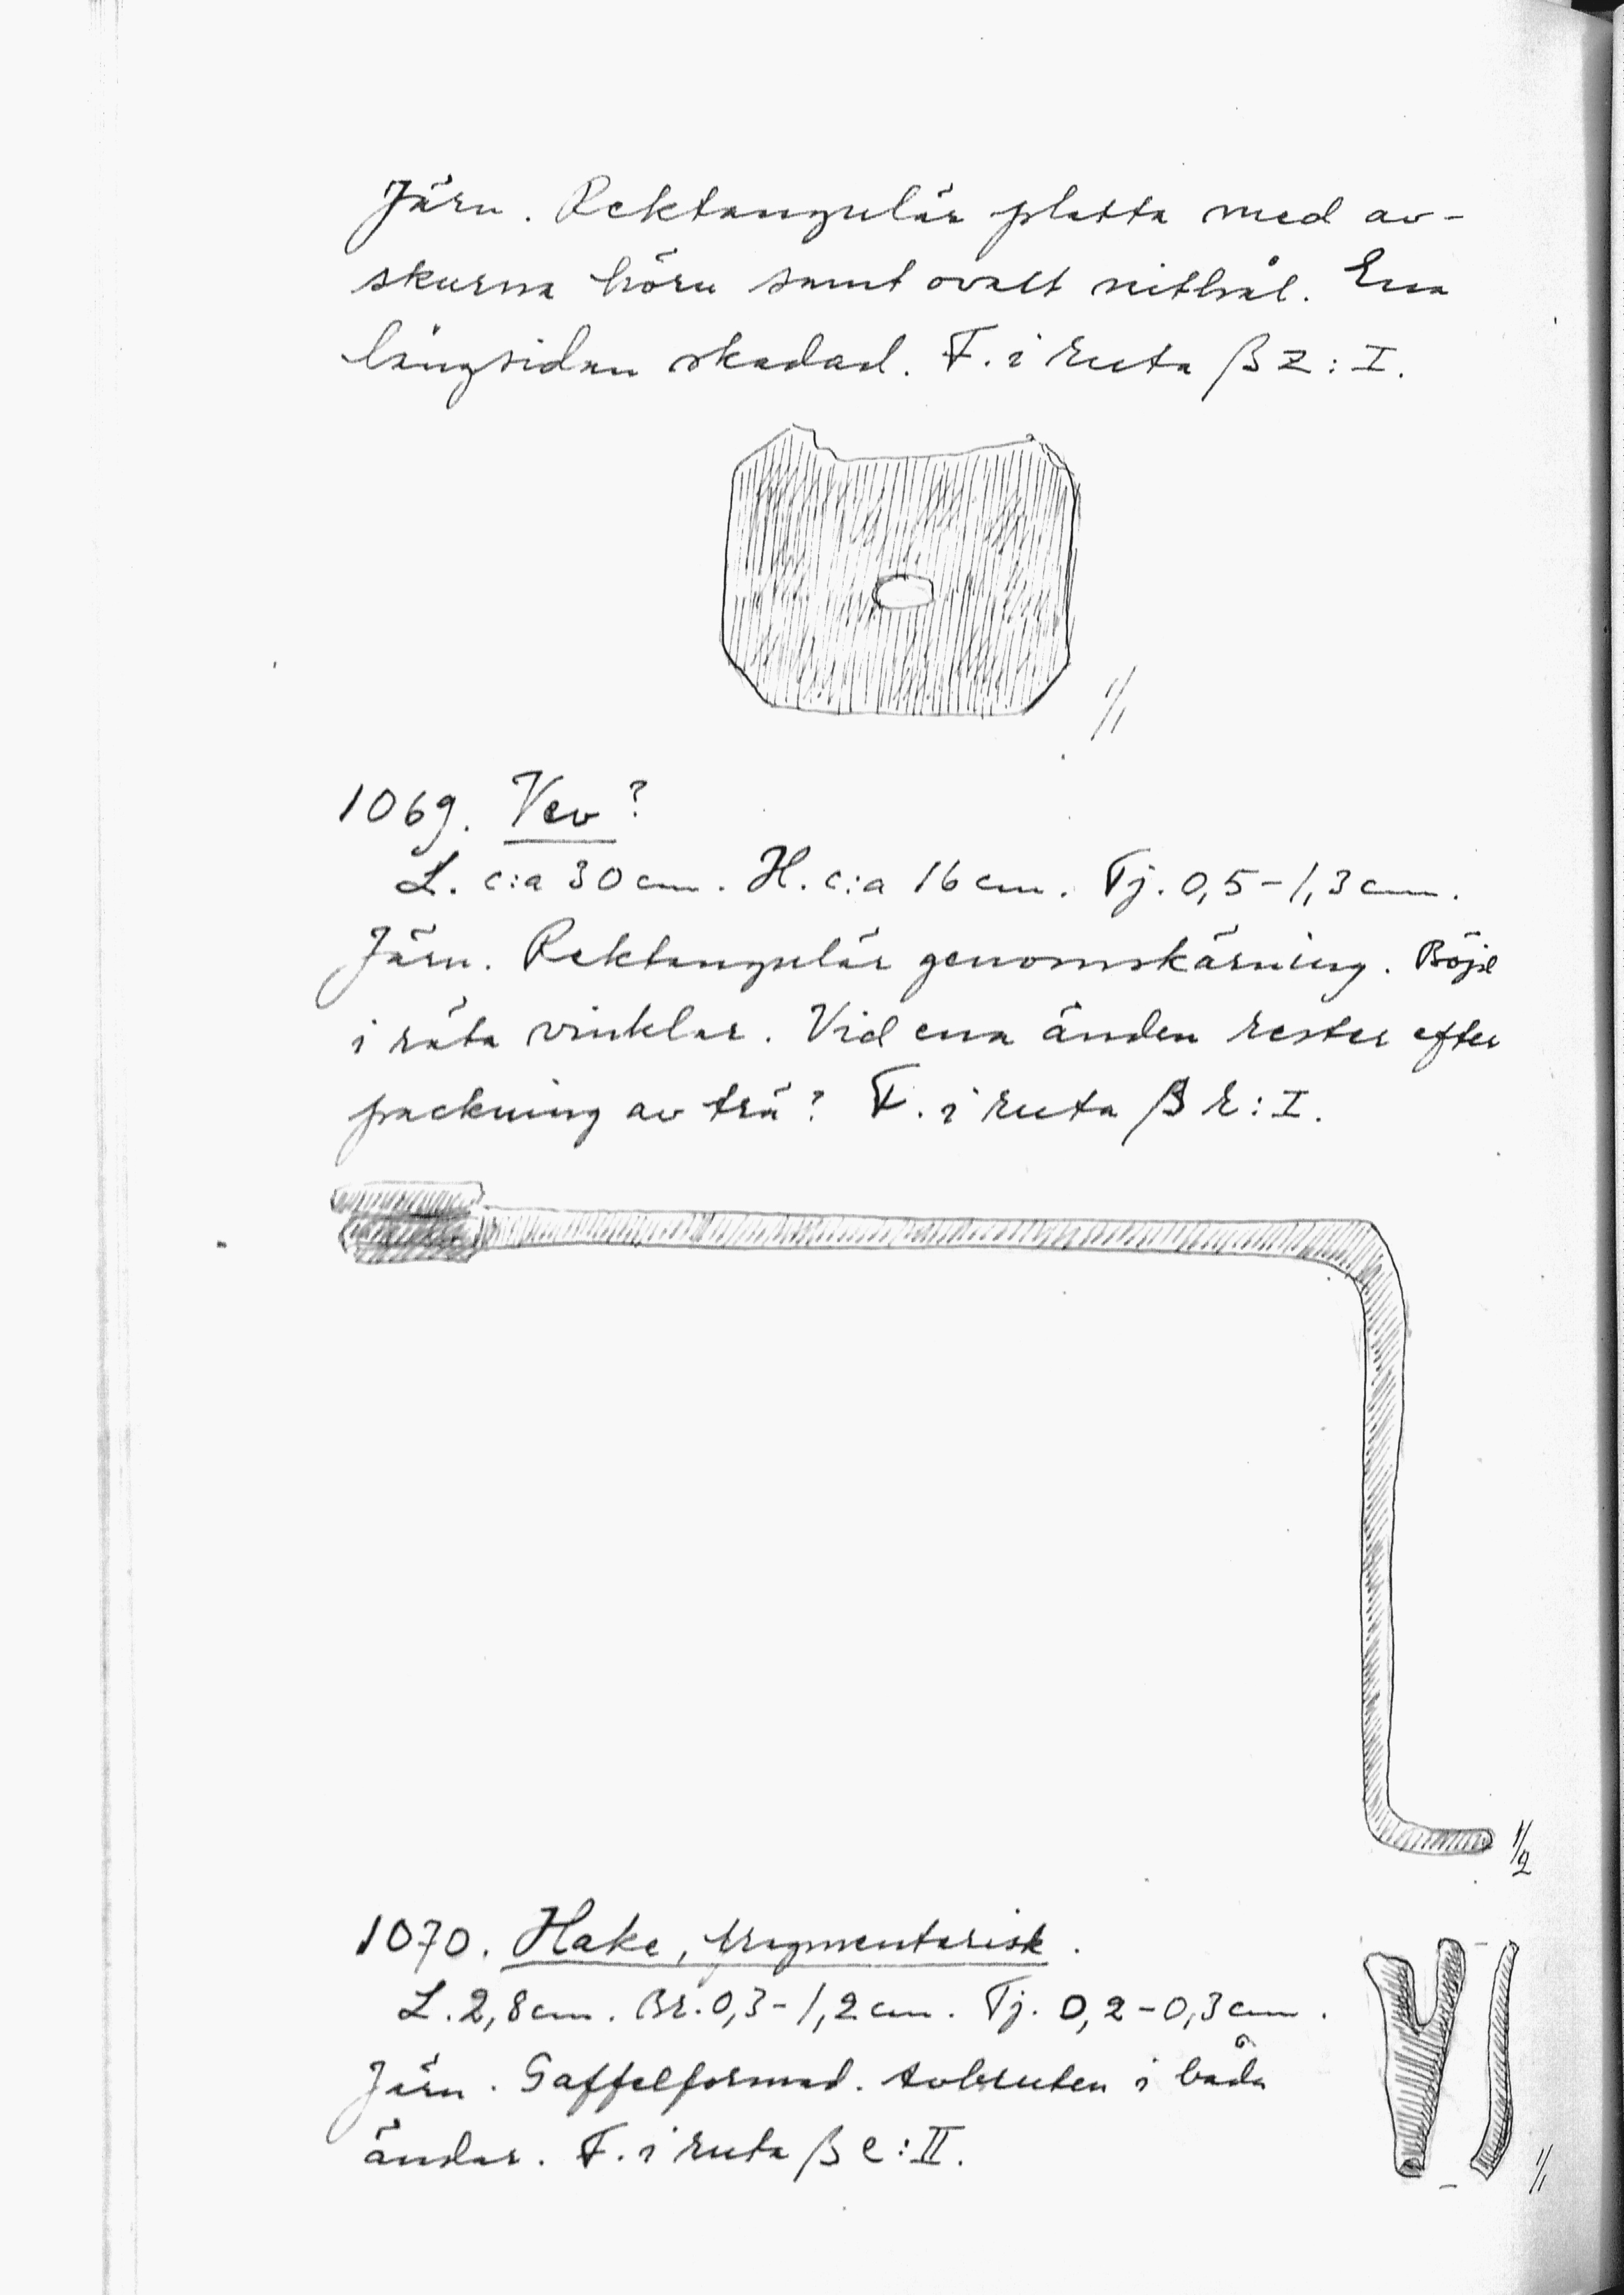 Järn. Rektangulär platta med av-
skurna hörn samt ovalt nithål. Ena
långsidan skadad. F. i ruta β z : I.
1/1
1069. Vev ?
L. c:a 30 cm. H. c:a 16 cm. Tj. 0,5 - 1,3 cm.
Järn. Rektangulär genomskärning. Böjd
i räta vinklar. Vid ena änden rester efter
packning av trä ? F. i ruta β r : I.
1/2
1070. Hake, fragmentarisk.
L. 2,8 cm. Br. 0,3 - 1,2 cm. Tj. 0,2 - 0,3 cm.
Järn. Gaffelformad. Avbruten i båda
ändar. F. i ruta β e : II.
1/1